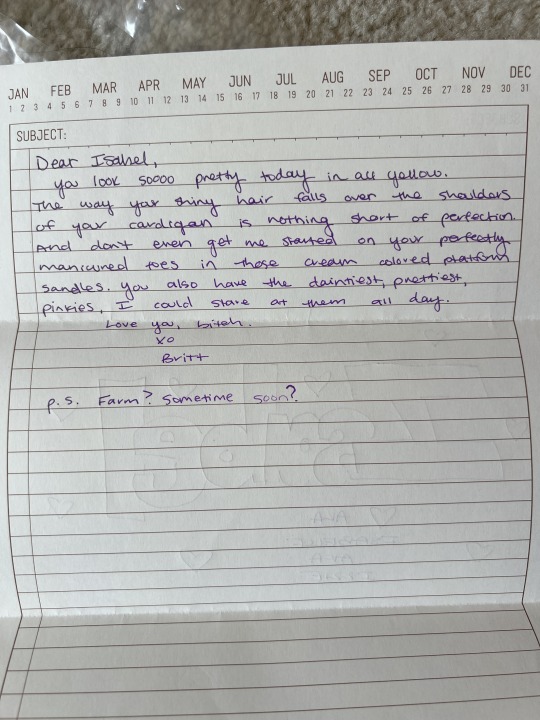 JAN FEB MAR APR MAY JUN JUL AUG SEP OCT NOV DEC
1 2 3 4 5 6 7 8 9 10 11 12 13 14 15 16 17 18 19 20 21 22 23 24 25 26 27 28 29 30 31
SUBJECT:
Dear Isabel,
you look soooo pretty today in all yellow.
The way your shiny hair falls over the shoulders
of your cardigan is nothing short of perfection.
And don't even get me started on your perfectly
manicured toes in those cream colored platform
sandles. you also have the daintiest, prettiest,
pinkies, I could stare at them all day.
Love you, bitch.
xo
Britt
p.s. Farm? Sometime soon?